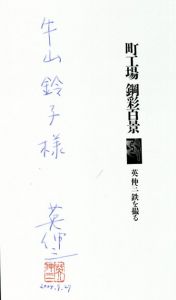 町工場 鋼彩百景
英 伸三 鉄を撮る
牛山鈴子様
英伸三